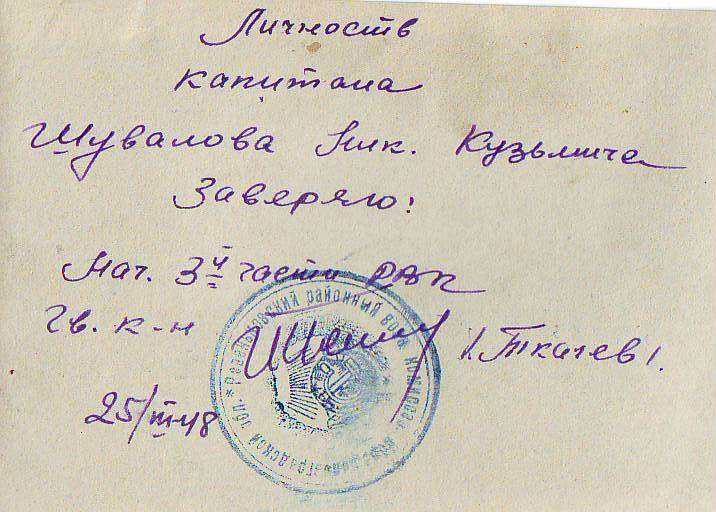 Личность
капитана
Шувалова Ник. Кузьмича
Заверяю:
Нач. 3й части РВК
Гв. к-н (Ткачев).
25/III-48
районный воен комисса
градской обл. *